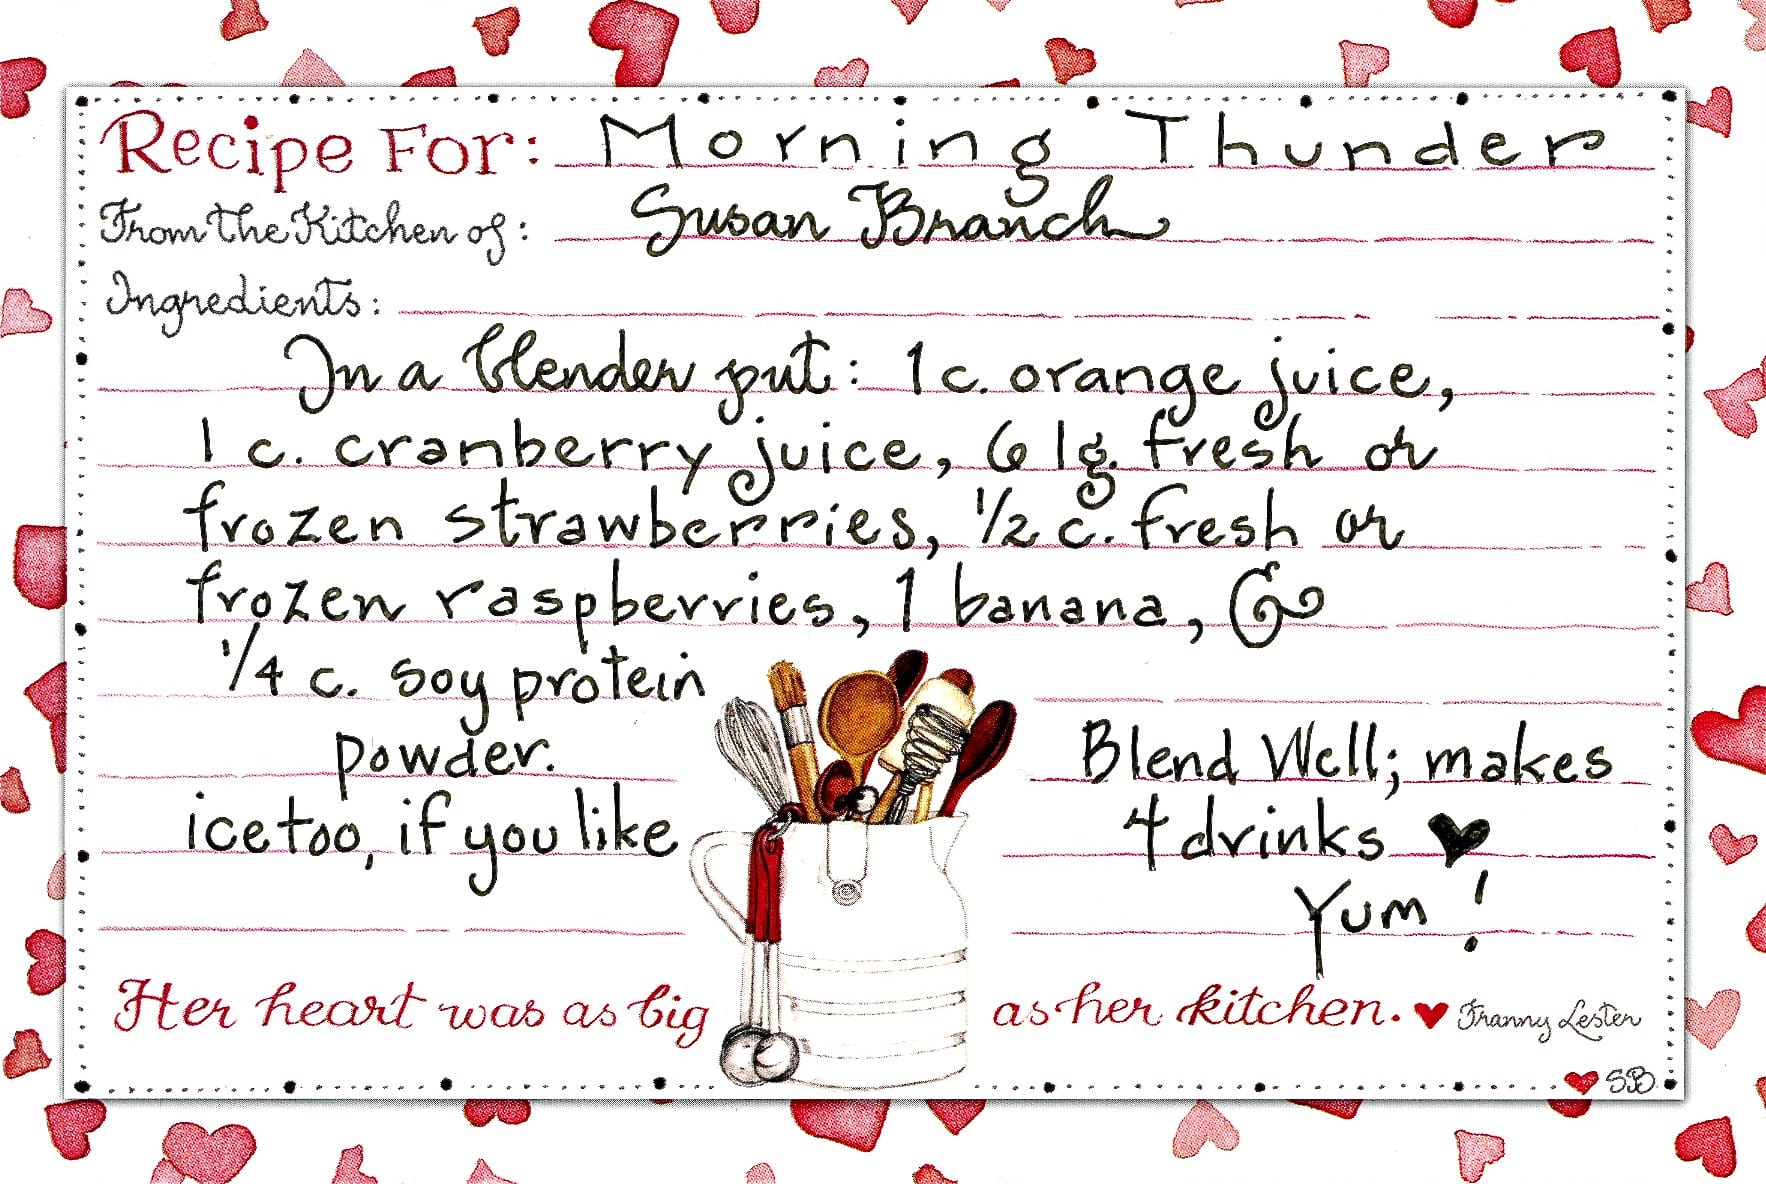 Recipe For: Morning Thunder
From the Kitchen of: Susan Branch
Ingredients:
In a blender put: 1 c. orange juice,
1 c. cranberry juice, 6 lg. fresh or
frozen strawberries, 1/2 c. fresh or
frozen raspberries, 1 banana, &
1/4 c. soy protein
powder.
ice too, if you like
Blend Well; makes
4 drinks ♥
Yum!
Her heart was as big as her kitchen. ♥ Franny Lester
♥ SB